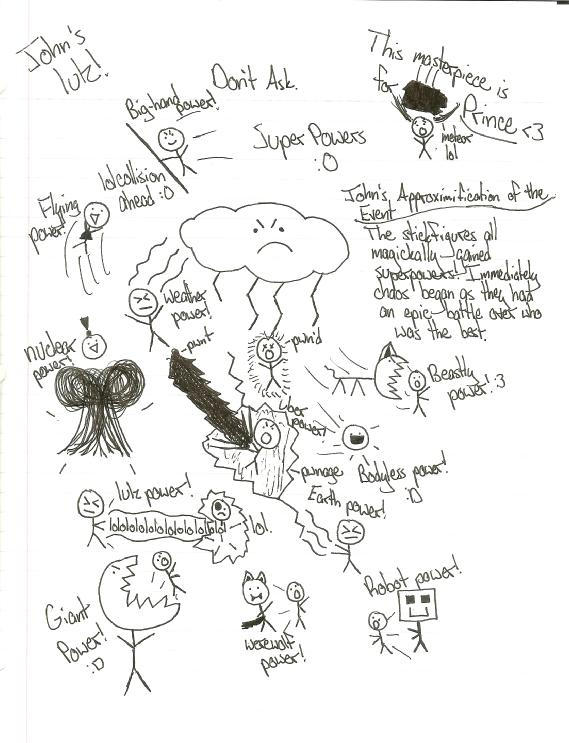 John's
lutz!
Don't Ask.
This masterpiece is
for
Prince <3
meteor
lol
Big-hand power!
Super Powers
:O
lolcollision
ahead :O
Flying
power!
John's Approximification of the
Event
The stickfigures all
magickally gained
superpowers! Immediately
chaos began as they had
an epic battle over who
was the best.
weather
power!
pwnt
pwn'd
nuclear
power!
Beastly
power! :3
Uber
power!
pwnage
Bodyless power!
:D
Earth power!
lutz power!
lolololololololololol
lol.
Giant
Power!
:D
werewolf
power!
Robot power!